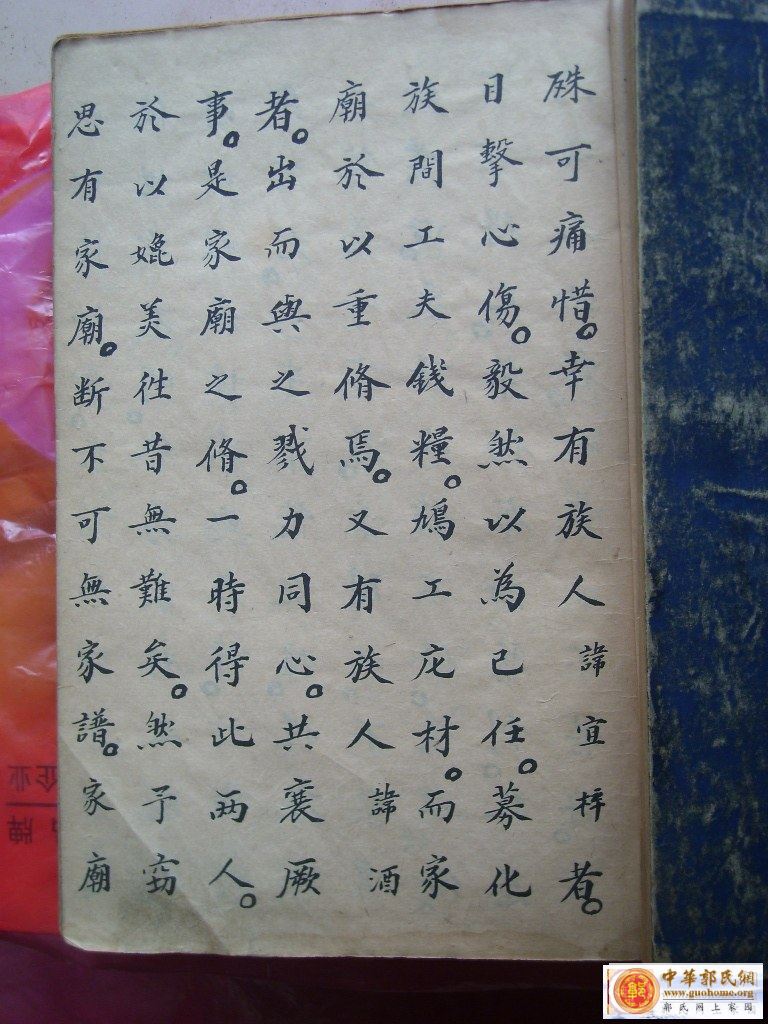 殊可痛惜。幸有族人諱宜梓者。
日擊心傷。毅然以為己任。募化
族間工夫錢糧。鳩工庀材。而家
廟於以重脩焉。又有族人諱酒
者。出而與之戮力同心。共襄厥
事。是家廟之脩。一時得此两人。
於以媲美徃昔無難矣。然予窃
思有家廟。断不可無家譜。家廟
中華郭氏網
www.guohome.org
郭氏网上家园
企业
牌